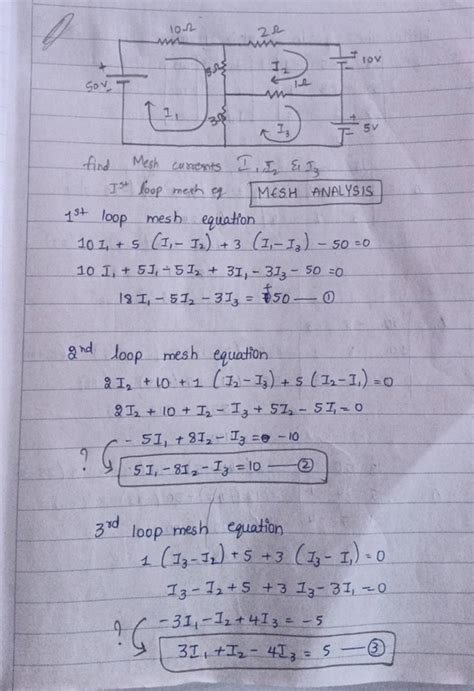 10Ω 2Ω
5Ω I₂ 10V
50V 1Ω
I₁ 3Ω I₃ 5V
find Mesh currents I₁, I₂ & I₃
Iˢᵗ loop mesh eq MESH ANALYSIS
1ˢᵗ loop mesh equation
10I₁ + 5 (I₁ - I₂) + 3 (I₁ - I₃) - 50 = 0
10 I₁ + 5I₁ - 5I₂ + 3I₁ - 3I₃ - 50 = 0
18 I₁ - 5I₂ - 3I₃ = +50 — ①
2ⁿᵈ loop mesh equation
2I₂ + 10 + 1 (I₂ - I₃) + 5 (I₂ - I₁) = 0
2I₂ + 10 + I₂ - I₃ + 5I₂ - 5I₁ = 0
- 5I₁ + 8I₂ - I₃ = - 10
? 5I₁ - 8I₂ - I₃ = 10 — ②
3ʳᵈ loop mesh equation
1 (I₃ - I₂) + 5 + 3 (I₃ - I₁) = 0
I₃ - I₂ + 5 + 3 I₃ - 3I₁ = 0
- 3I₁ - I₂ + 4I₃ = - 5
? 3I₁ + I₂ - 4I₃ = 5 — ③